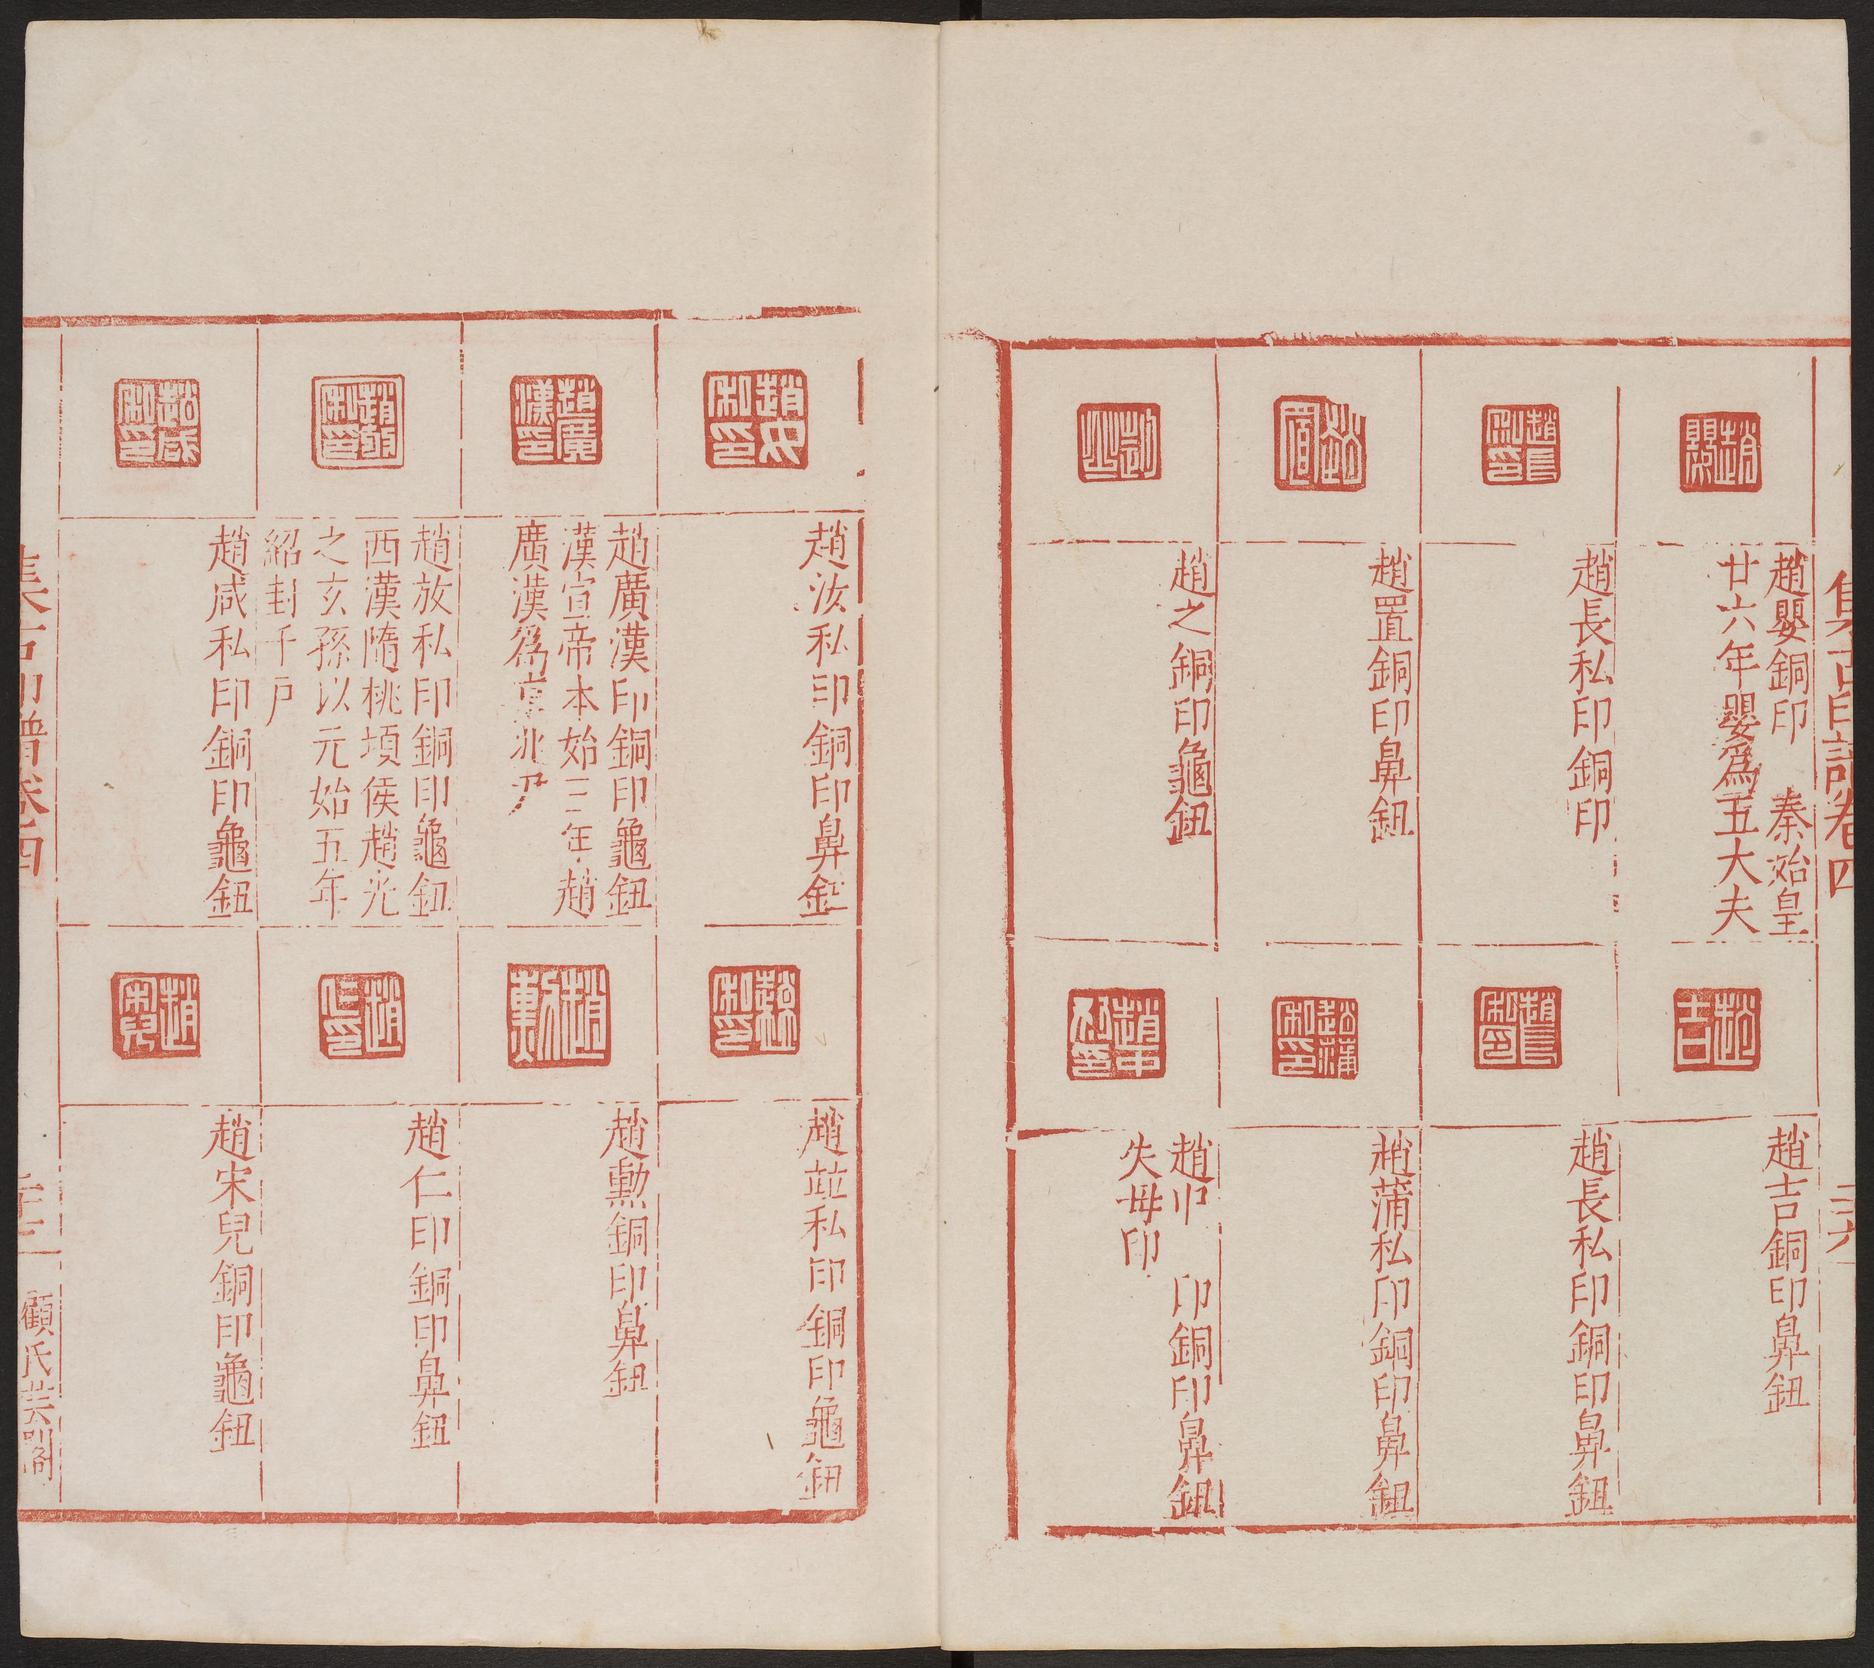 集古印譜卷四
趙嬰銅印 秦始皇
廿六年嬰爲五大夫
趙長私印銅印
趙置銅印鼻鈕
趙之銅印龜鈕
趙吉銅印鼻鈕
趙長私印銅印鼻鈕
趙蒲私印銅印鼻鈕
趙巾 印銅印鼻鈕
失母印
趙汝私印銅印鼻鈕
趙廣漢印銅印龜鈕
漢宣帝本始三年趙
廣漢爲京兆尹
趙放私印銅印龜鈕
西漢隋桃頃侯趙光
之玄孫以元始五年
紹封千戶
趙咸私印銅印龜鈕
趙並私印銅印龜鈕
趙勳銅印鼻鈕
趙仁印銅印鼻鈕
趙宋兒銅印龜鈕
集古印譜卷四
顧氏芸閣